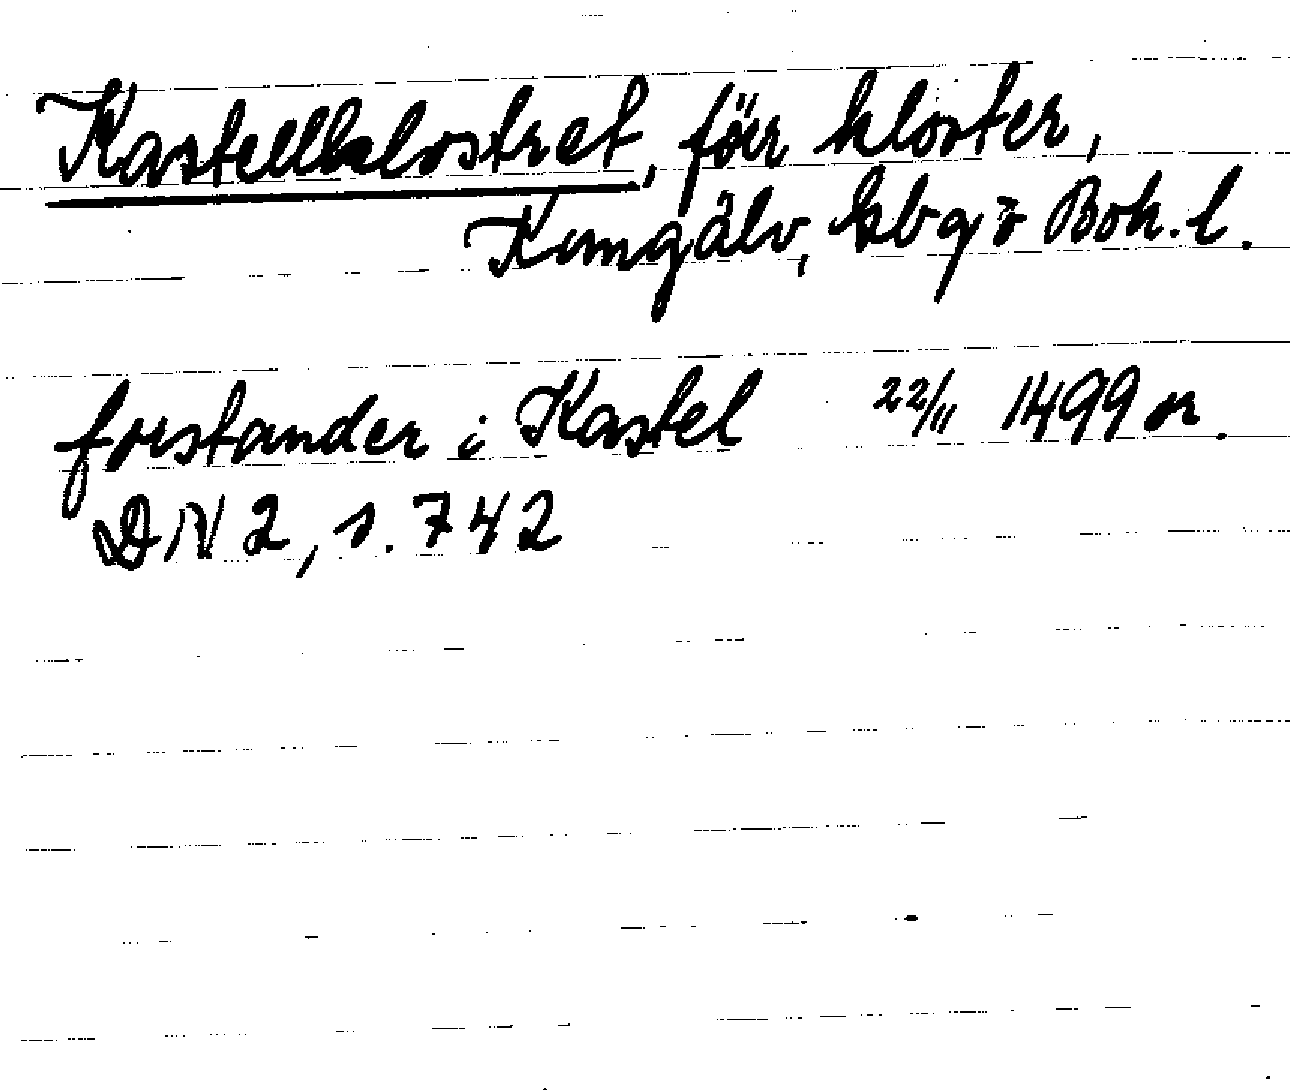 Kastellklostret, förr kloster,
Kungälv, kbg ö Boh. l.
forstander i Kastel 22/11 1499 or.
DN 2, s. 742